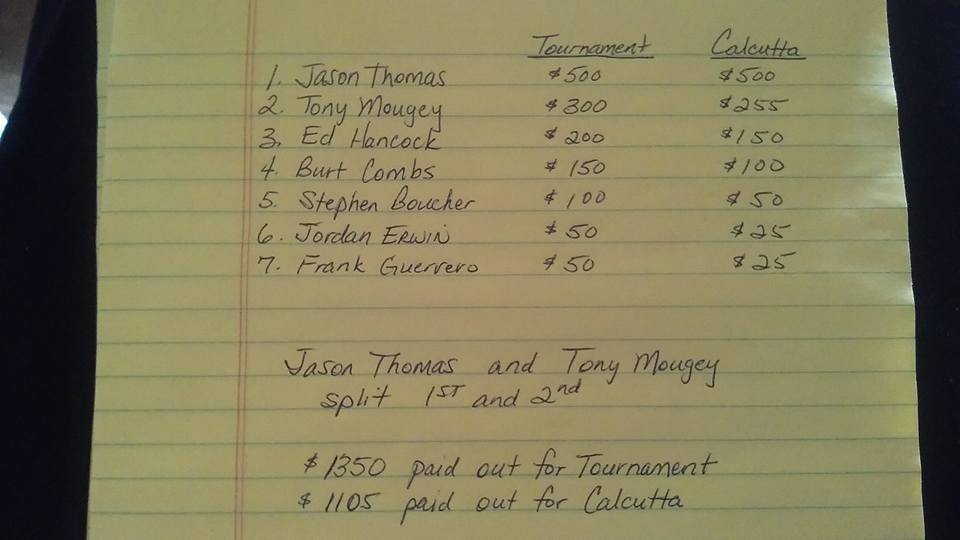 Tournament Calcutta
1. Jason Thomas $500 $500
2. Tony Mougey $300 $255
3. Ed Hancock $200 $150
4. Burt Combs $150 $100
5. Stephen Boucher $100 $50
6. Jordan ERWIN $50 $25
7. Frank Guerrero $50 $25
Jason Thomas and Tony Mougey
split 1ST and 2nd
$1350 paid out for Tournament
$1105 paid out for Calcutta